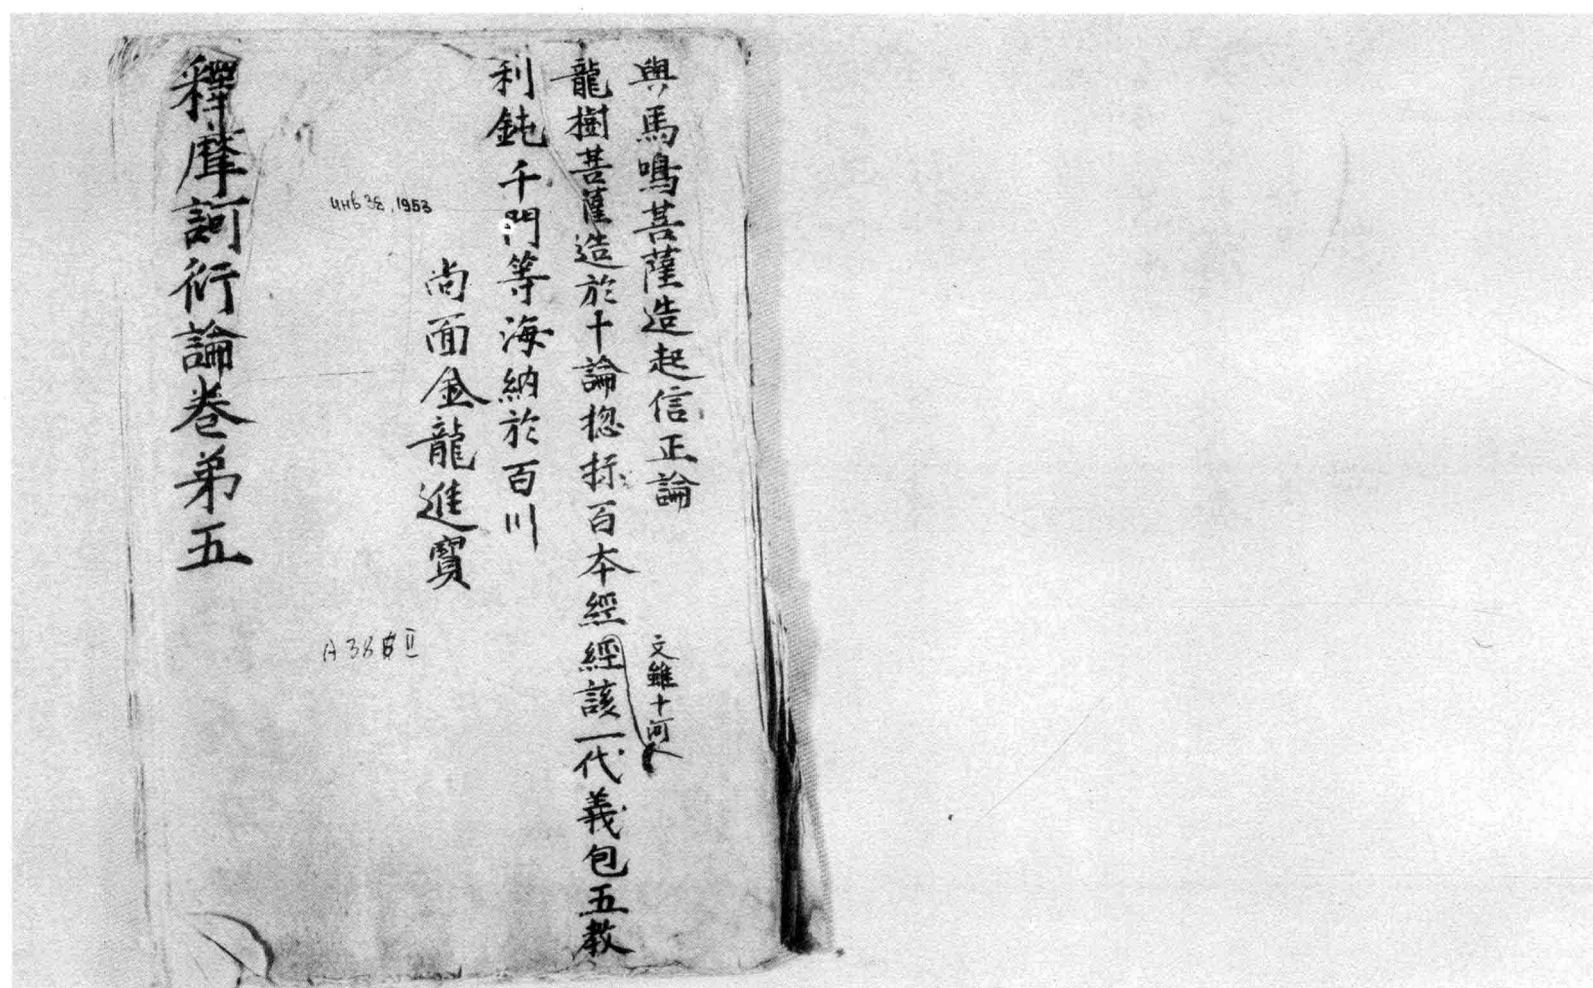 與馬鳴菩薩造起信正論
文雖十河
龍樹菩薩造於十論揔标百本經經該一代義包五教
利鈍千門等海納於百川
尚面金龍進寳
ИНБ 38, 1953
A 38 II
釋摩訶衍論卷弟五